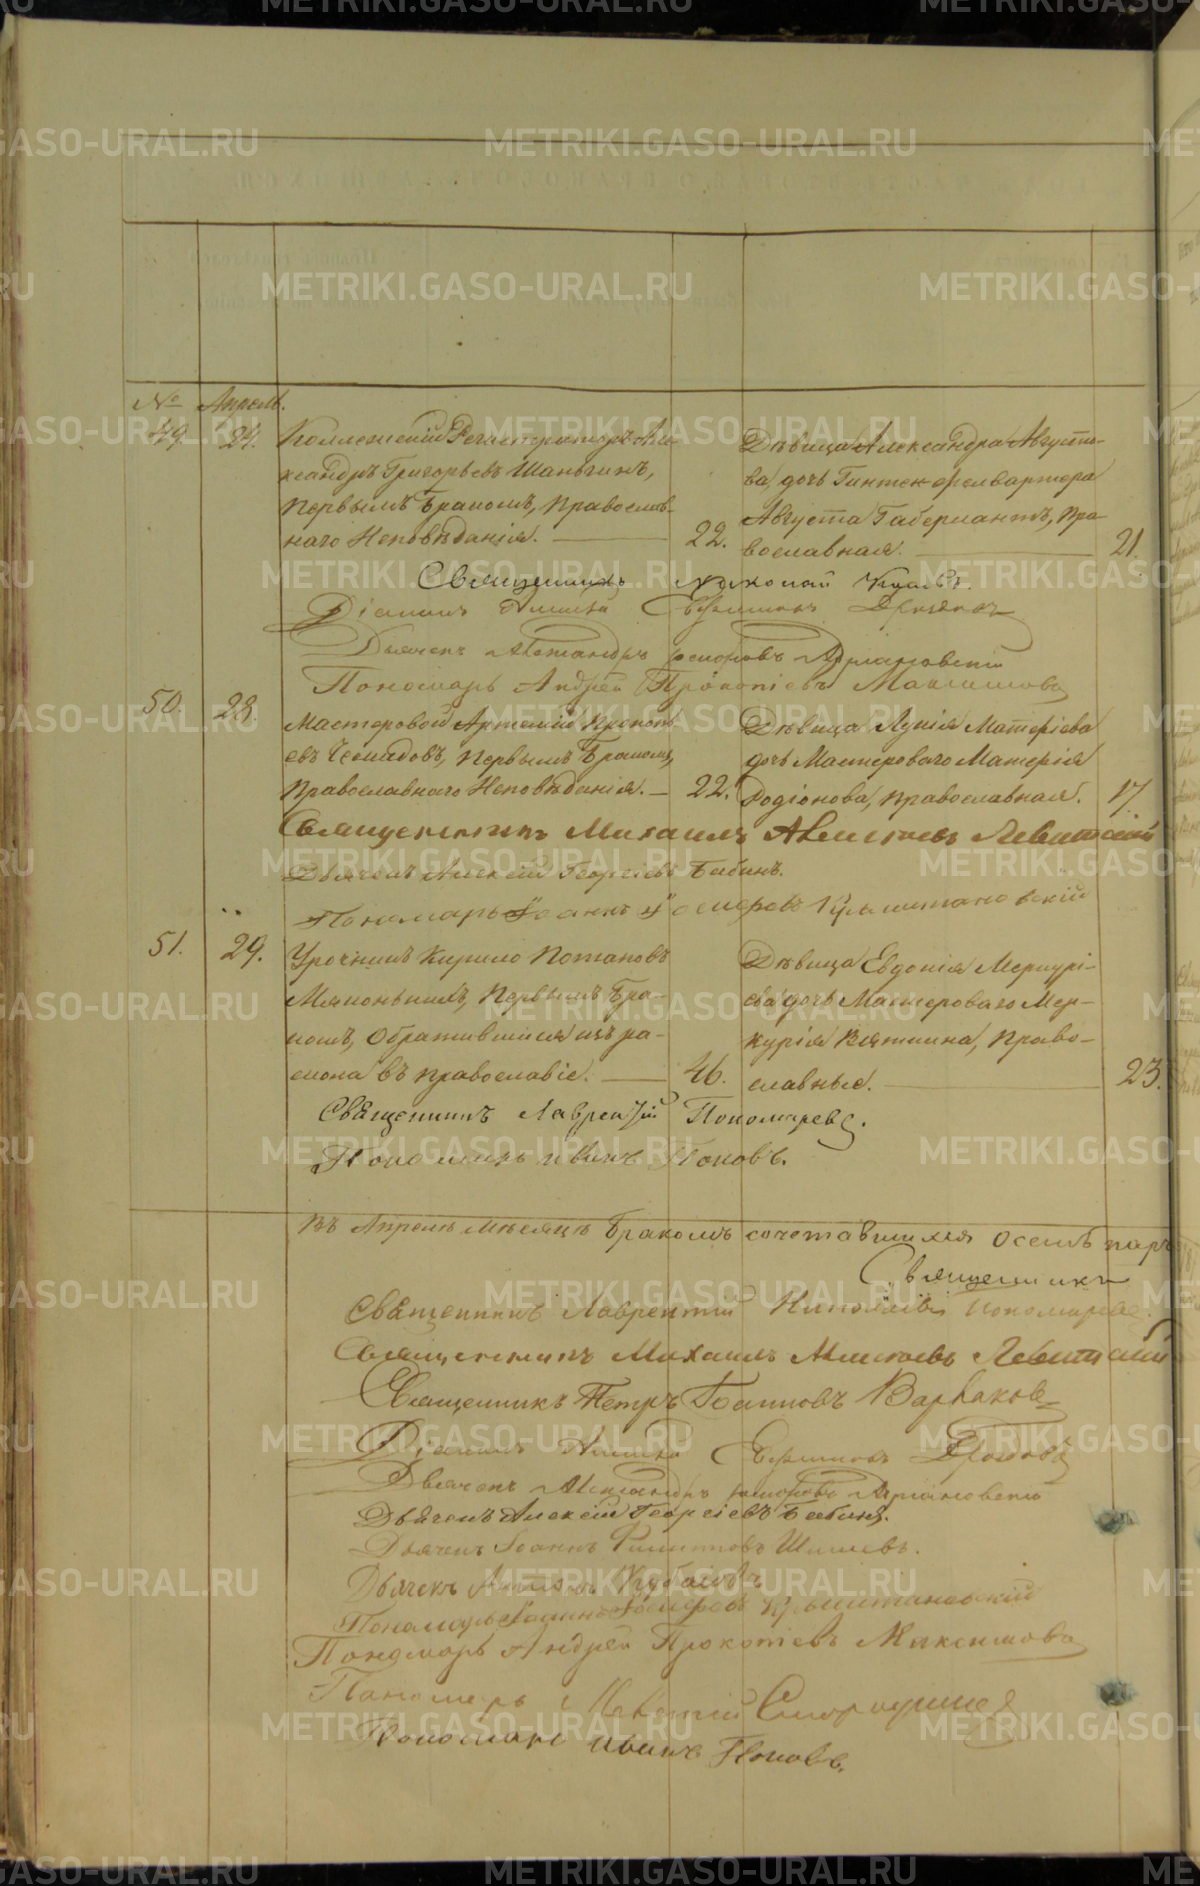 № Апрель.
49. 24. Коллежскій Регистраторъ Але-
ксандръ Григорьевъ Шаньгинъ,
первымъ бракомъ, православ-
наго исповѣданія. 22.
Дѣвица Александра Августо-
ва, дочь Гиттенфервартера
Августа Габерлантъ, пра-
вославная. 21.
Священникъ Николай
Діаконъ Евфимовъ
Дьячекъ Александръ Адріановскій
Пономарь Андрей Прокопіевъ Максимовъ
50. 28. Мастеровой Артемій Прокопь-
евъ первымъ бракомъ,
православнаго исповѣданія. 22.
Дѣвица Лукія Матѳіева
дочь Мастероваго Матѳія
Родіонова, православная. 17
Священникъ Михаилъ Алексѣевъ Левитскій
Дьячекъ Алексѣй Георгіевъ Бабинъ.
Пономарь Іоаннъ
51. 29. Урочникъ Кирило Потаповъ
первымъ бра-
комъ, обратившійся изъ ра-
скола въ православіе. 46.
Дѣвица Евдокія Меркурі-
ева дочь Мастероваго Мер-
курія Вяткина, право-
славные. 23.
Священникъ Лаврентій Пономаревъ.
Пономарь Иванъ Поповъ.
Въ Апрелѣ мѣсяцѣ бракомъ сочетавшихся осемь паръ
Священникъ
Священникъ Лаврентій Николаевъ Пономаревъ.
Священникъ Михаилъ Алексѣевъ Левитскій
Священникъ Петръ Іоанновъ Варваковъ
Діаконъ Евфимовъ
Дьячекъ Александръ Адріановскій
Дьячекъ Алексѣй Георгіевъ Бабинъ.
Дьячекъ Іоаннъ Филипповъ Шишевъ.
Дьячекъ
Пономарь Іоаннъ
Пономарь Андрей Прокопіевъ Максимовъ
Пономарь
Пономарь Иванъ Поповъ.
METRIKI.GASO-URAL.RU